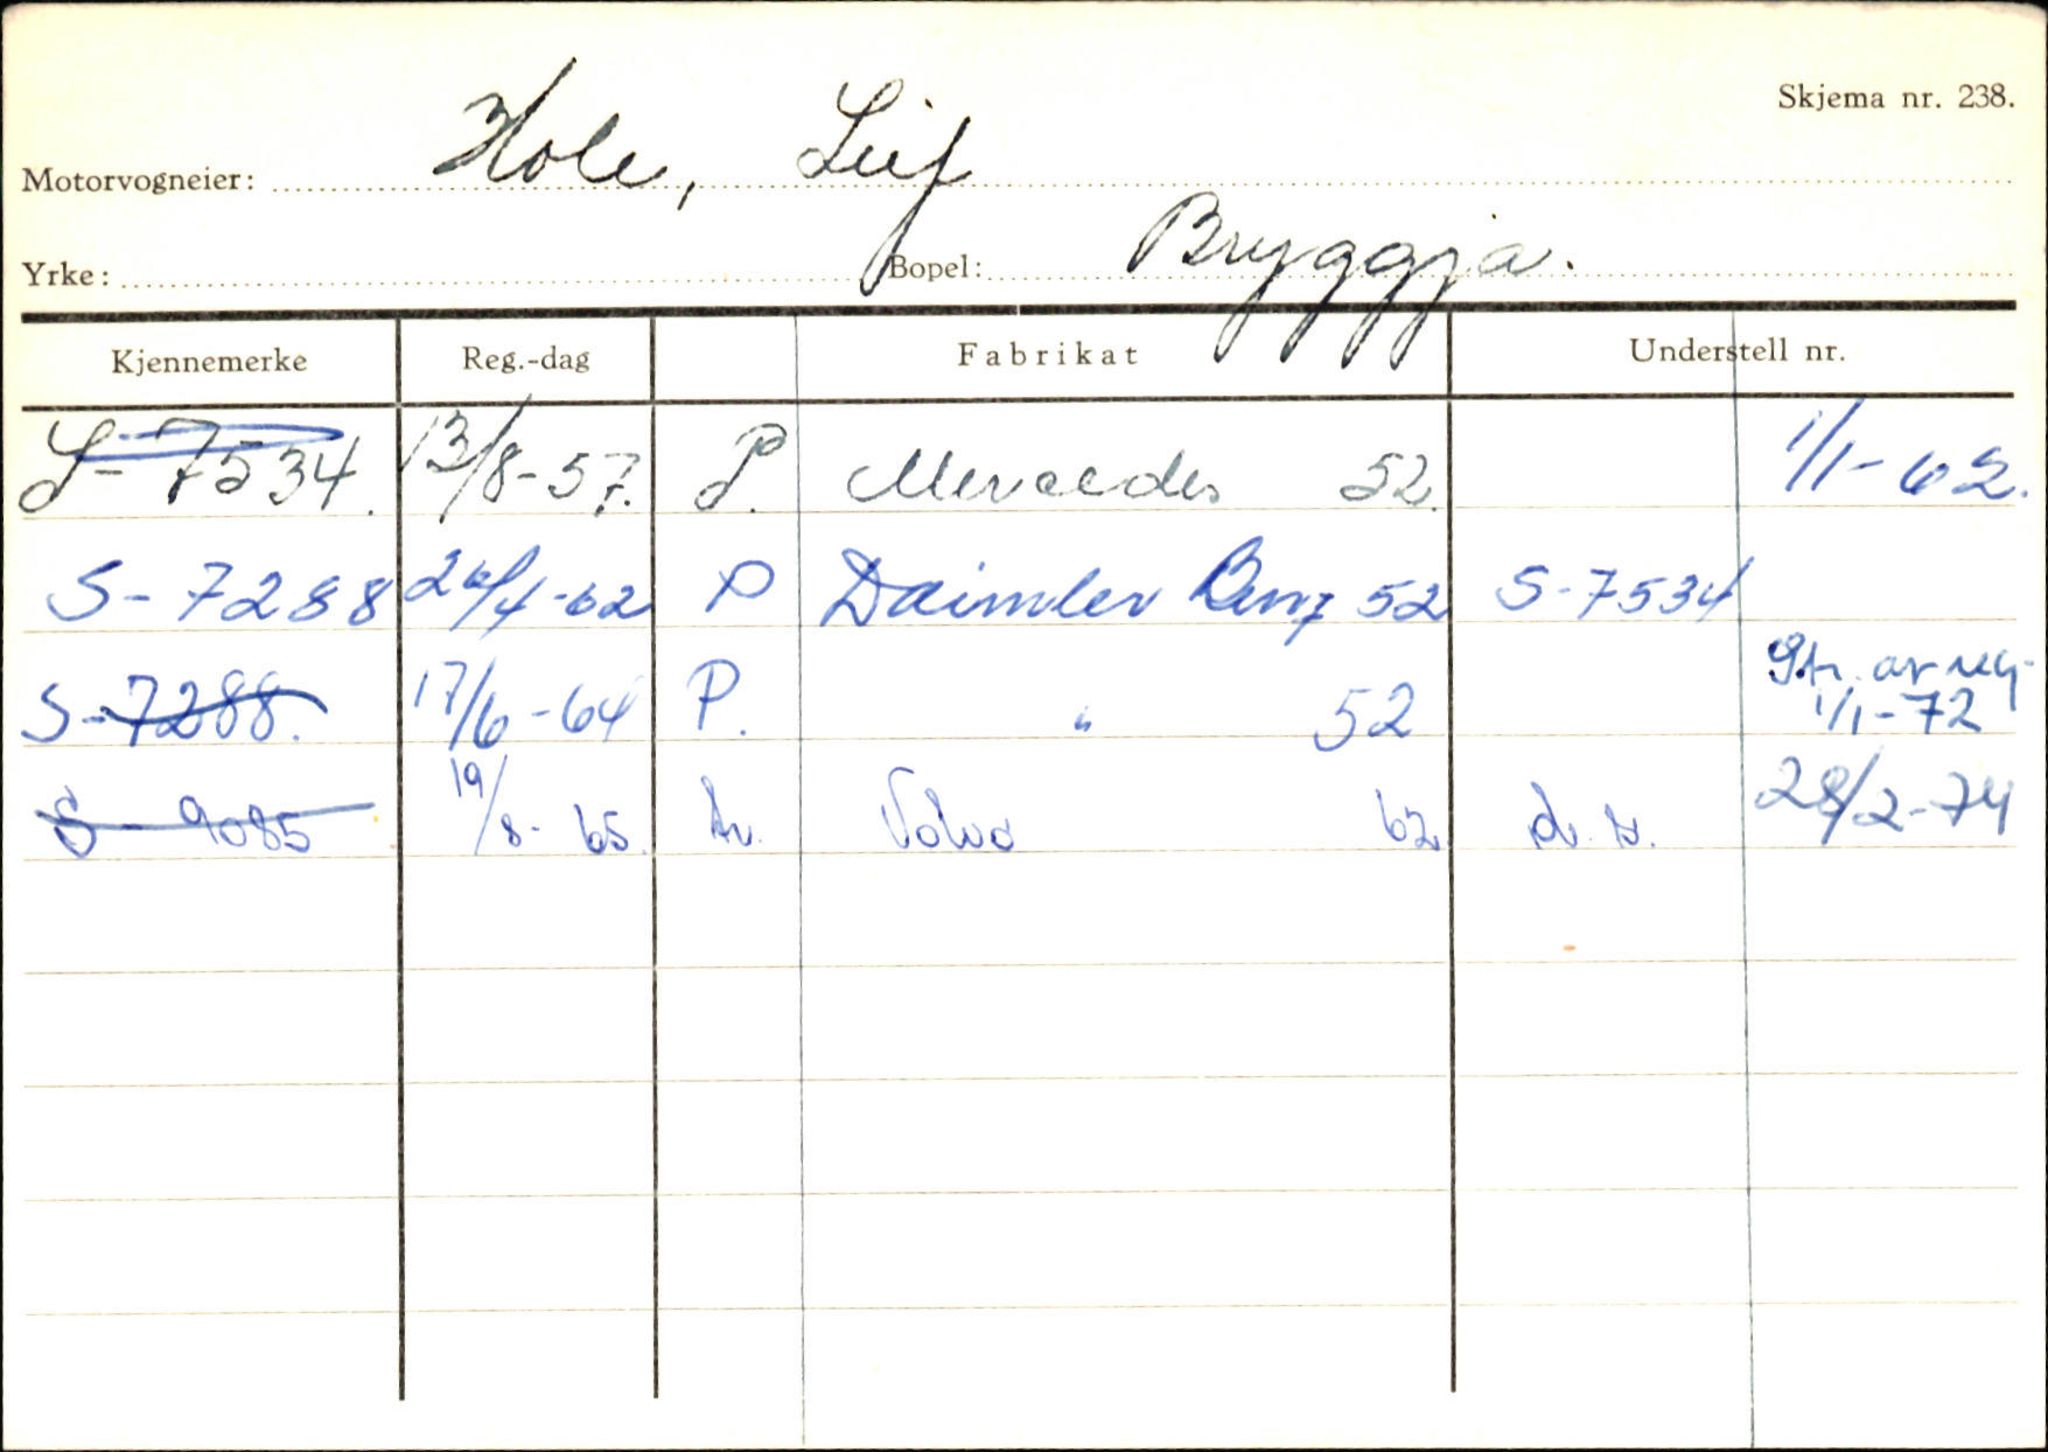 Skjema nr. 238.
Motorvogneier: Hole, Leif
Yrke: Bopel: Bryggja.
Kjennemerke Reg.-dag Fabrikat Understell nr.
S-7534. 13/8-57. P. Mercedes 52. 1/1-62.
S-7288 26/4-62 P Daimler Benz 52 S-7534
S-7288. 17/6-64 P. " 52 Str. av reg. 1/1-72
S-9085 19/8-65. Volvo 62 28/2-74